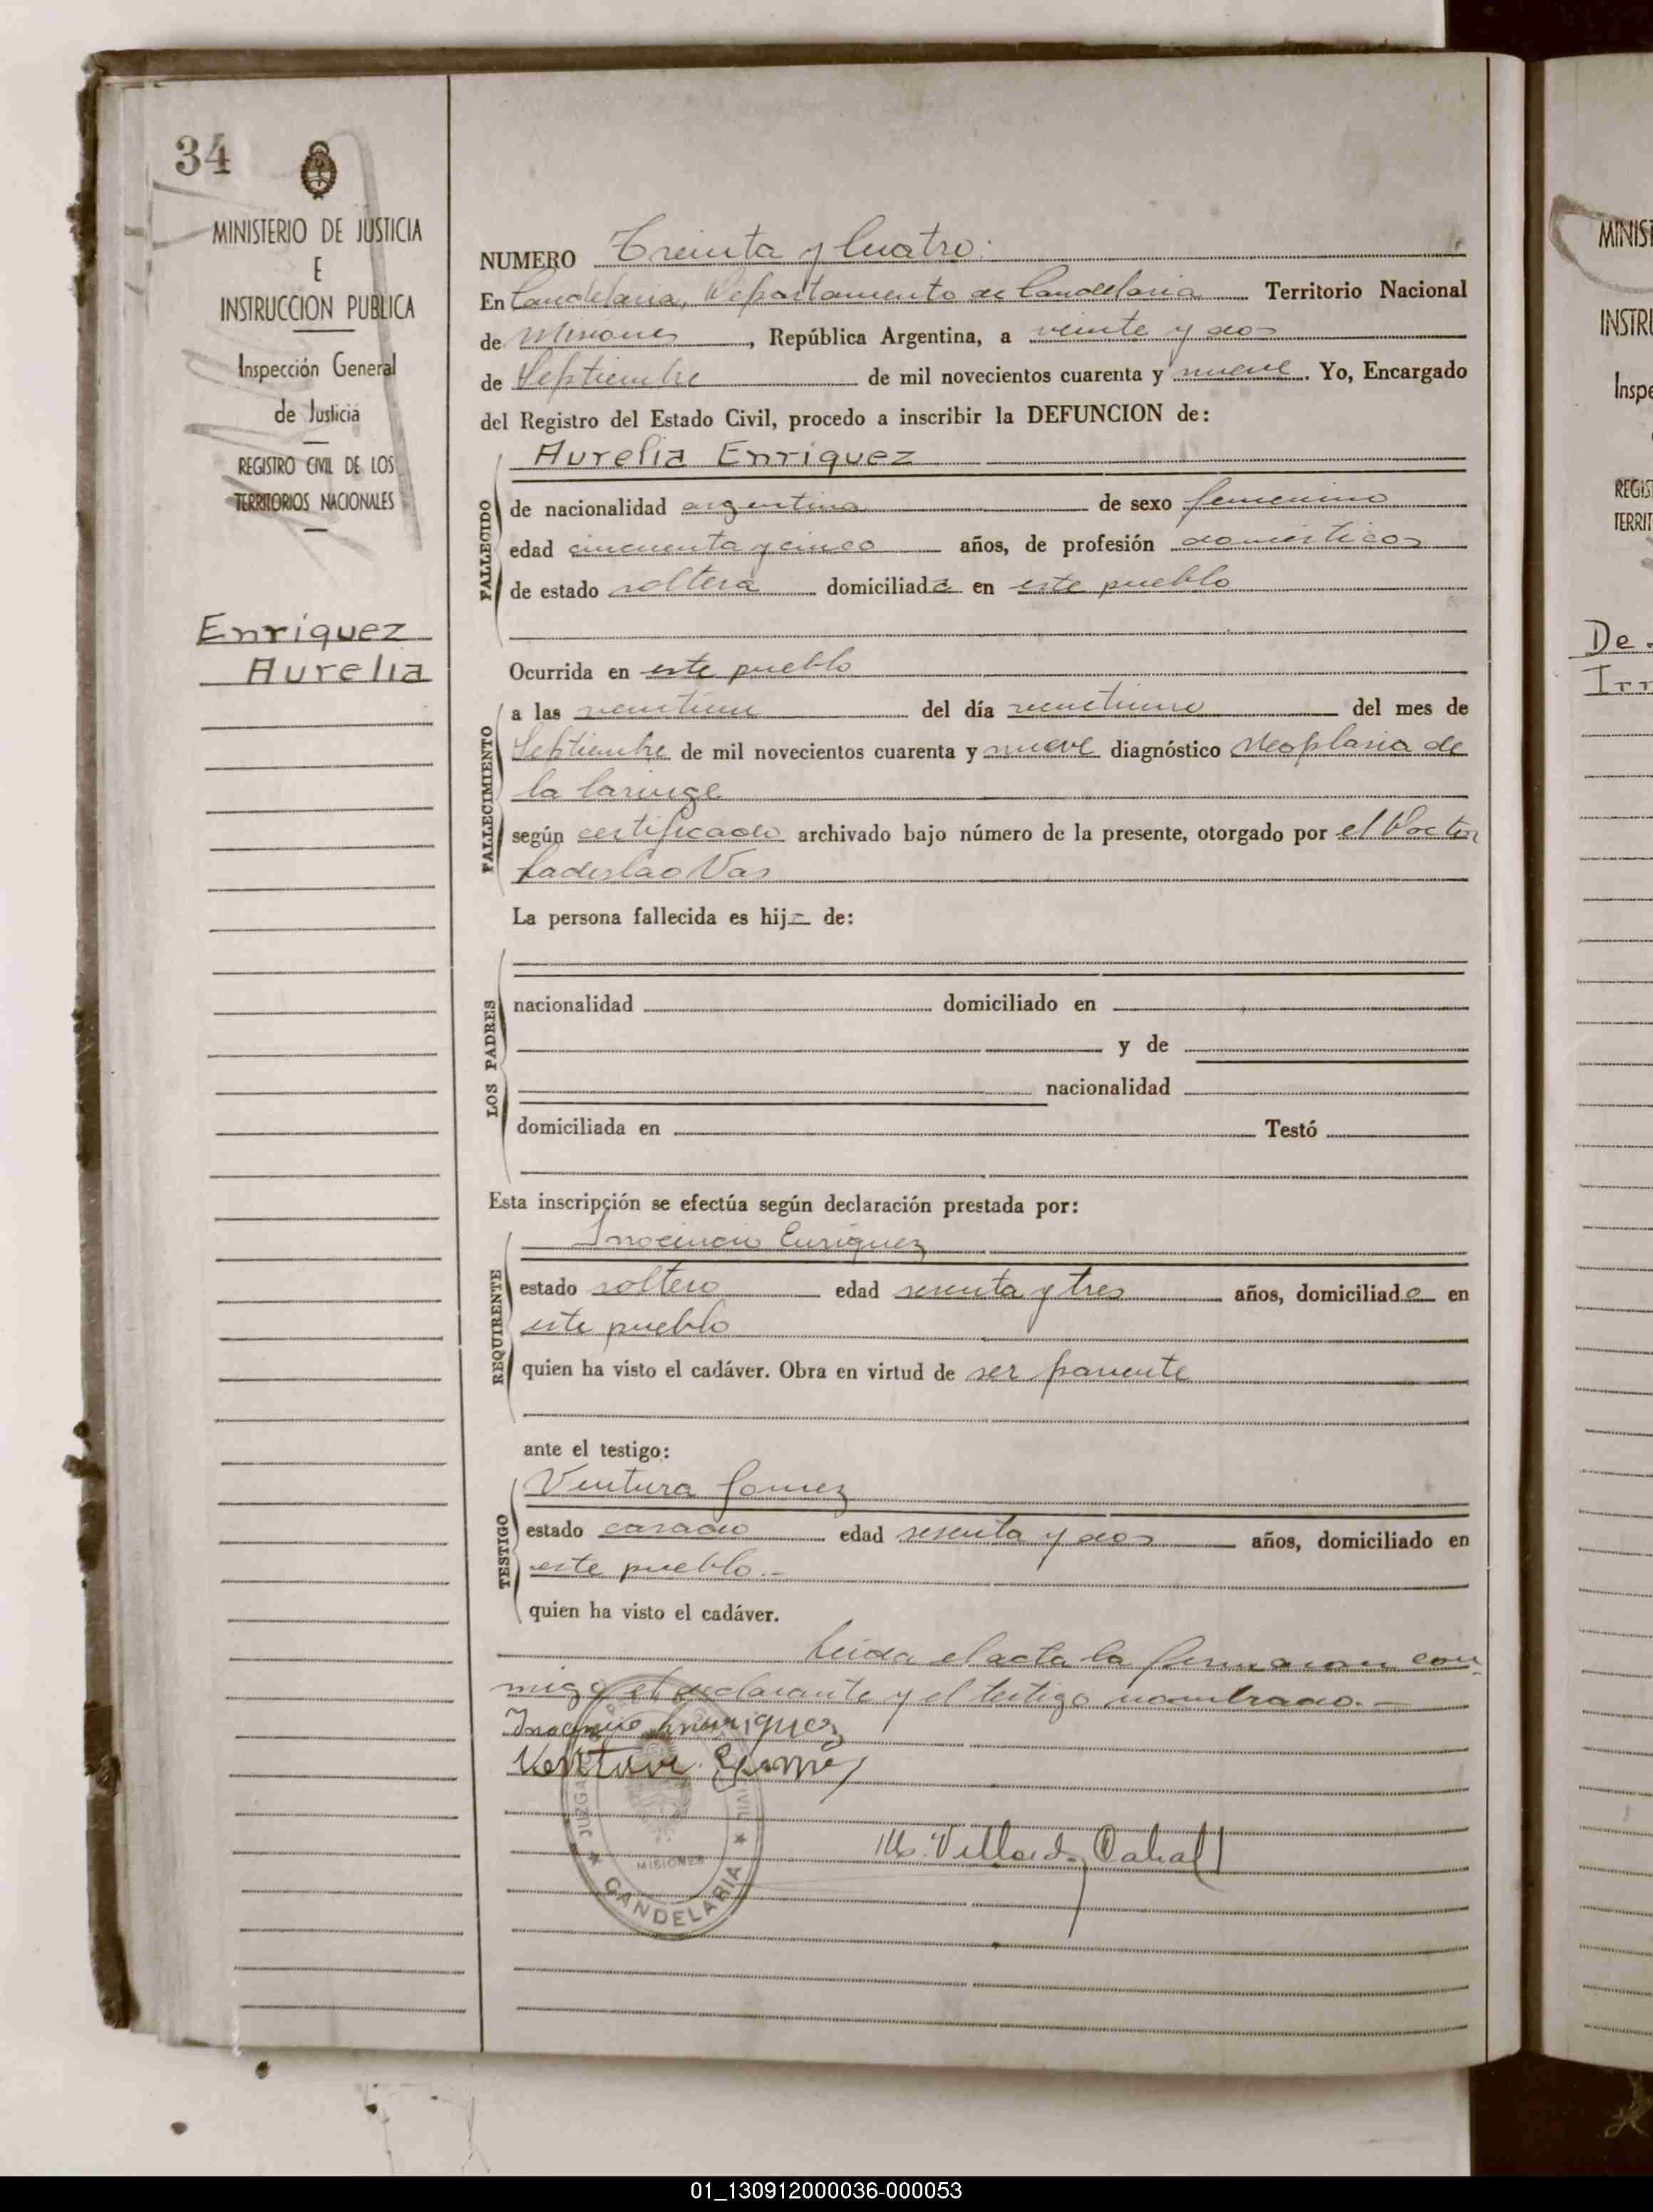 34
MINISTERIO DE JUSTICIA
E
INSTRUCCION PUBLICA
Inspección General
de Justicia
REGISTRO CIVIL DE LOS
TERRITORIOS NACIONALES
Enriquez
Aurelia
NUMERO Treinta y Cuatro.
En Candelaria, Departamento de Candelaria Territorio Nacional
de Misiones, República Argentina, a veinte y dos
de Septiembre de mil novecientos cuarenta y nueve. Yo, Encargado
del Registro del Estado Civil, procedo a inscribir la DEFUNCION de:
Aurelia Enriquez
FALLECIDO
de nacionalidad argentina de sexo femenino
edad cincuenta y cinco años, de profesión domésticos
de estado soltera domiciliada en este pueblo
Ocurrida en este pueblo
FALLECIMIENTO
a las veintiun del día veintiuno del mes de
Septiembre de mil novecientos cuarenta y nueve diagnóstico Neoplasia de
la laringe
según certificado archivado bajo número de la presente, otorgado por el Doctor
Ladislao Vas
La persona fallecida es hij de:
LOS PADRES
nacionalidad domiciliado en
y de
nacionalidad
domiciliada en Testó
Esta inscripción se efectúa según declaración prestada por:
Inocencio Enriquez
REQUIRENTE
estado soltero edad sesenta y tres años, domiciliado en
este pueblo
quien ha visto el cadáver. Obra en virtud de ser pariente
ante el testigo:
Ventura Gomez
TESTIGO
estado casado edad sesenta y dos años, domiciliado en
este pueblo.-
quien ha visto el cadáver.
Leida el acta la firmaron con
migo el declarante y el testigo nombrado.-
Inocencio Enriquez
Ventura Gomez
M. Villordo Cabral
JUZGA
CIVIL
MISIONES
CANDELARIA
MINIST
INSTRU
Inspe
REGIST
TERRIT
De
Irr
01_130912000036-000053